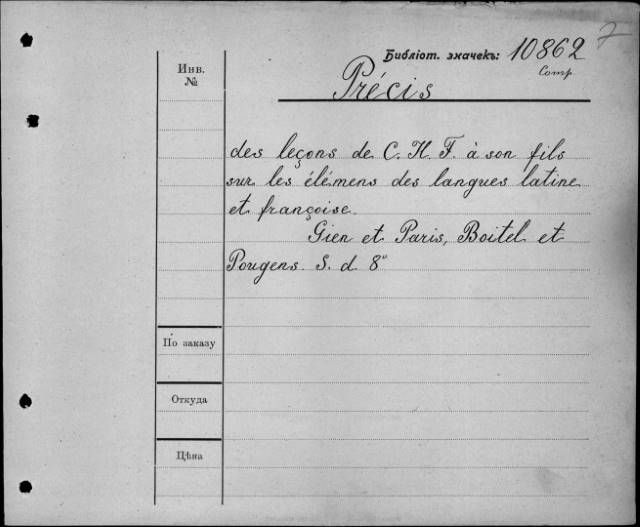 7
Библіот. значекъ: 10862
Comp
Инв.
№
Précis
des leçons de C. H. F. à son fils
sur les élémens des langues latine
et françoise.
Gien et Paris, Boitel et
Pougens. S. d 8°
По заказу
Откуда
Цѣна